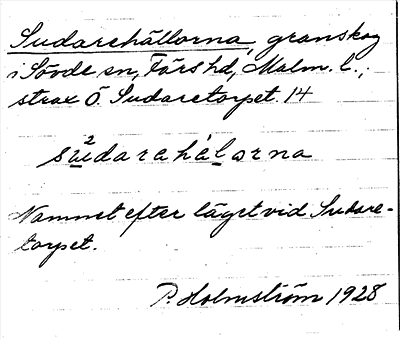 Sudarehällorna, granskog
i Sövde sn, Färs hd, Malm. l.;
strax Ö. Sudaretorpet. 14
sudarehälorna
Namnet efter läget vid Sudare-
torpet.
P. Holmström 1928